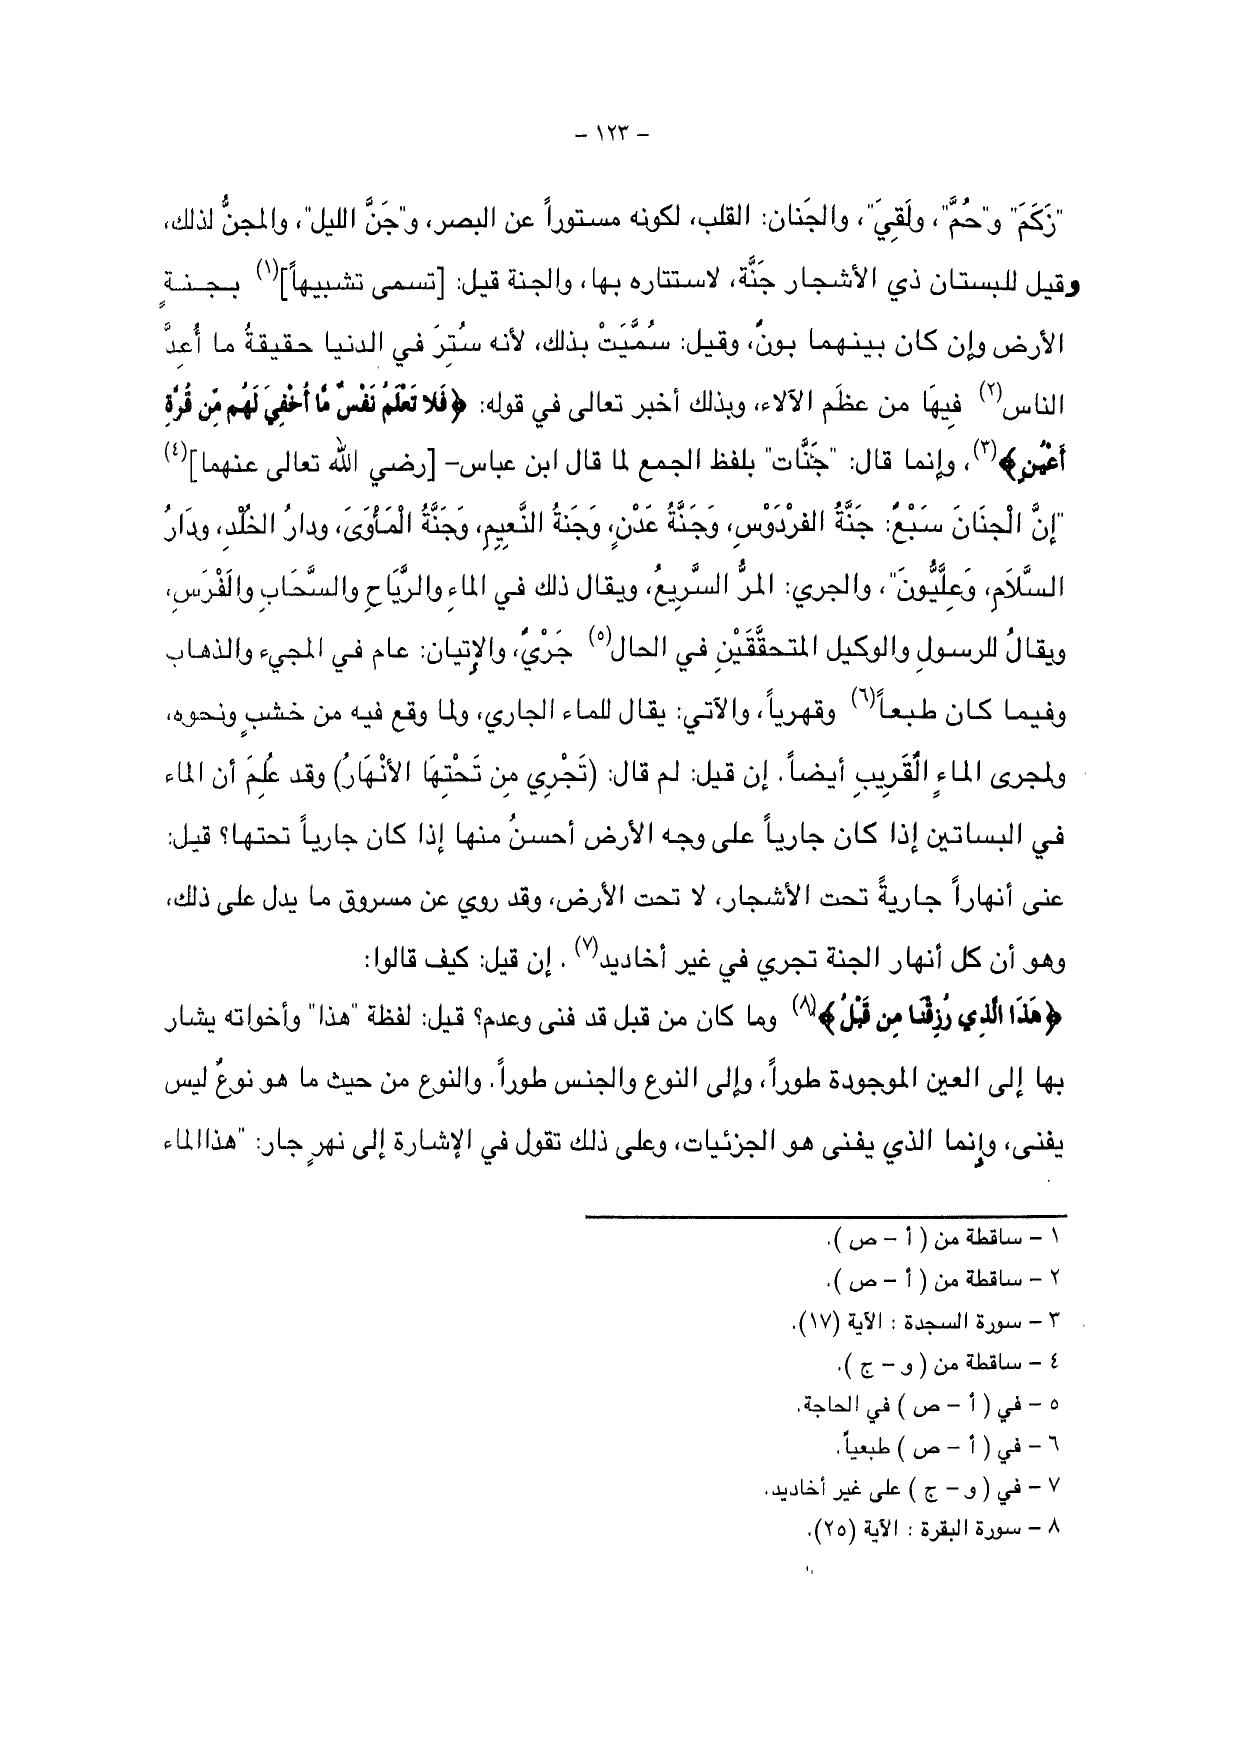 – ١٢٣ –
"زَكَمَ" و"حُمَّ"، ولَقيَ"، والجَنان: القلب، لكونه مستوراً عن البصر، و"جَنَّ الليل"، والمجنُّ لذلك،
وقيل للبستان ذي الأشجار جَنَّة، لاستتاره بها، والجنة قيل: [تسمى تشبيهاً](١) بجنـةٍ
الأرض وإن كان بينهما بونٌ، وقيل: سُمَّيَتْ بذلك، لأنه سُترَ في الدنيا حقيقةُ ما أُعِدَّ
الناس(٢) فيهَا من عظَمِ الآلاء، وبذلك أخبر تعالى في قوله: ﴿فَلا تَعْلَمُ نَفْسٌ مَّا أُخْفِيَ لَهُم مِّن قُرَّةِ
أَعْيُنٍ﴾(٣)، وإنما قال: "جَنَّات" بلفظ الجمع لما قال ابن عباس– [رضي الله تعالى عنهما](٤)
"إنَّ الْجنَانَ سَبْعٌ: جَنَّةُ الفرْدَوْسِ، وَجَنَّةُ عَدْنٍ، وَجَنةُ النَّعيمِ، وَجَنَّةُ الْمَأوَىَ، ودارُ الخُلْدِ، ودَارُ
السَّلَامِ، وَعلِيُّونَ"، والجري: المرُّ السَّريعُ، ويقال ذلك في الماءِ والرِّيَاحِ والسَّحَابِ والفَرْسِ،
ويقالُ للرسولِ والوكيلِ المتحقَّقَيْنِ في الحال(٥) جَرْيٌ، والإتيان: عام في المجيء والذهاب
وفيما كان طبعاً(٦) وقهرياً، والآتي: يقال للماء الجاري، ولما وقع فيه من خشبٍ ونحوه،
ولمجرى الماءٍ القُريبِ أيضاً. إن قيل: لم قال: (تَجْرِي مِن تَحْتهَا الأنْهَارُ) وقد عُلِمَ أن الماء
في البساتين إذا كان جارياً على وجه الأرض أحسنُ منها إذا كان جارياً تحتها؟ قيل:
عنى أنهاراً جاريةً تحت الأشجار، لا تحت الأرض، وقد روي عن مسروق ما يدل على ذلك،
وهو أن كل أنهار الجنة تجري في غير أخاديد(٧). إن قيل: كيف قالوا:
﴿هَذَا الَّذِي رُزِقْنَا مِن قَبْلُ﴾(٨) وما كان من قبل قد فنى وعدم؟ قيل: لفظة "هذا" وأخواته يشار
بها إلى العين الموجودة طوراً، وإلى النوع والجنس طوراً. والنوع من حيث ما هو نوعٌ ليس
يفنى، وإنما الذي يفنى هو الجزئيات، وعلى ذلك تقول في الإشارة إلى نهرٍ جار: "هذاالماء
١ – ساقطة من ( أ – ص ).
٢ – ساقطة من ( أ – ص ).
٣ – سورة السجدة : الآية (١٧).
٤ – ساقطة من ( و – ج ).
٥ – في ( أ – ص ) في الحاجة.
٦ – في ( أ – ص ) طبعياً.
٧ – في ( و – ج ) على غير أخاديد.
٨ – سورة البقرة : الآية (٢٥).